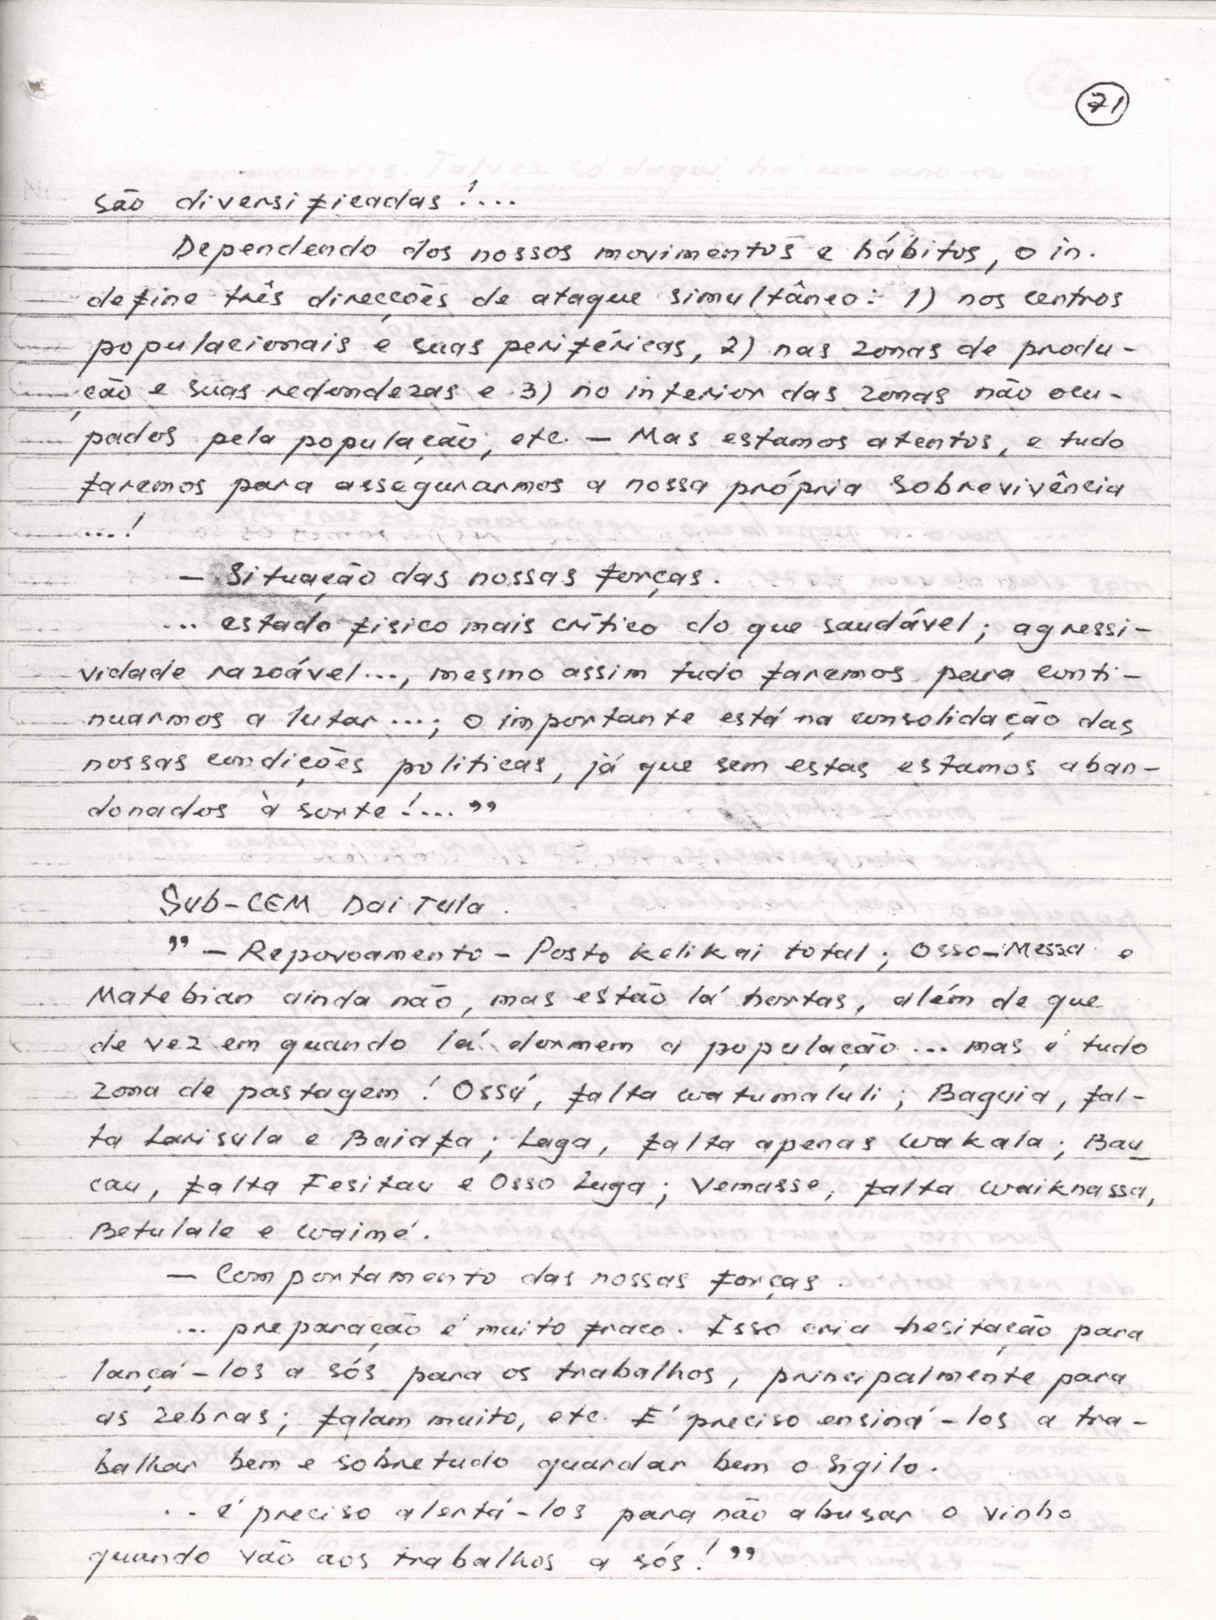 71
são diversificadas!...
Dependendo dos nossos movimentos e hábitos, o in.
define três direcções de ataque simultâneo: 1) nos centros
populacionais e suas periféricas, 2) nas zonas de produ-
ção e suas redondezas e 3) no interior das zonas não ocu-
pados pela população, etc. — Mas estamos atentos, e tudo
faremos para assegurarmos a nossa própria sobrevivência
...!
— Situação das nossas forças.
... estado fisico mais crítico do que saudável; agressi-
vidade razoável..., mesmo assim tudo faremos para conti-
nuarmos a lutar...; o importante está na consolidação das
nossas condições politicas, já que sem estas estamos aban-
donados à sorte!...”
Sub-CEM Dai Tula.
” — Repovoamento — Posto Kelikai total; Osso-Messa e
Matebian ainda não, mas estão lá hortas, além de que
de vez em quando lá dormem a população... mas é tudo
zona de pastagem! Ossú, falta watumaluli; Baguia, fal-
ta Larisula e Baiafa; Laga, falta apenas Wakala; Bau
cau, falta Fesitau e Osso Luga; Vemasse, falta Waiknassa,
Betulale e Waimé.
— Comportamento das nossas forças.
... preparação é muito fraco. Isso cria hesitação para
lançá-los a sós para os trabalhos, principalmente para
as zebras; falam muito, etc. É preciso ensiná-los a tra-
balhar bem e sobretudo guardar bem o sigilo.
... é preciso alertá-los para não abusar o vinho
quando vão aos trabalhos a sós!”